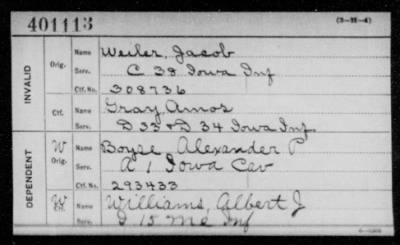 401113 (3-98-4)
INVALID
Orig. Name Weiler, Jacob
Serv. C 38 Iowa Inf
Ctf. No. 308736
Ctf. Name Gray, Amos
Serv. D 33 & D 34 Iowa Inf.
DEPENDENT
W Orig. Name Boyse, Alexander P
Serv. A 1 Iowa Cav
Ctf. No. 293433
W Ctf. Name Williams, Albert J
Serv. I 15 Me Inf